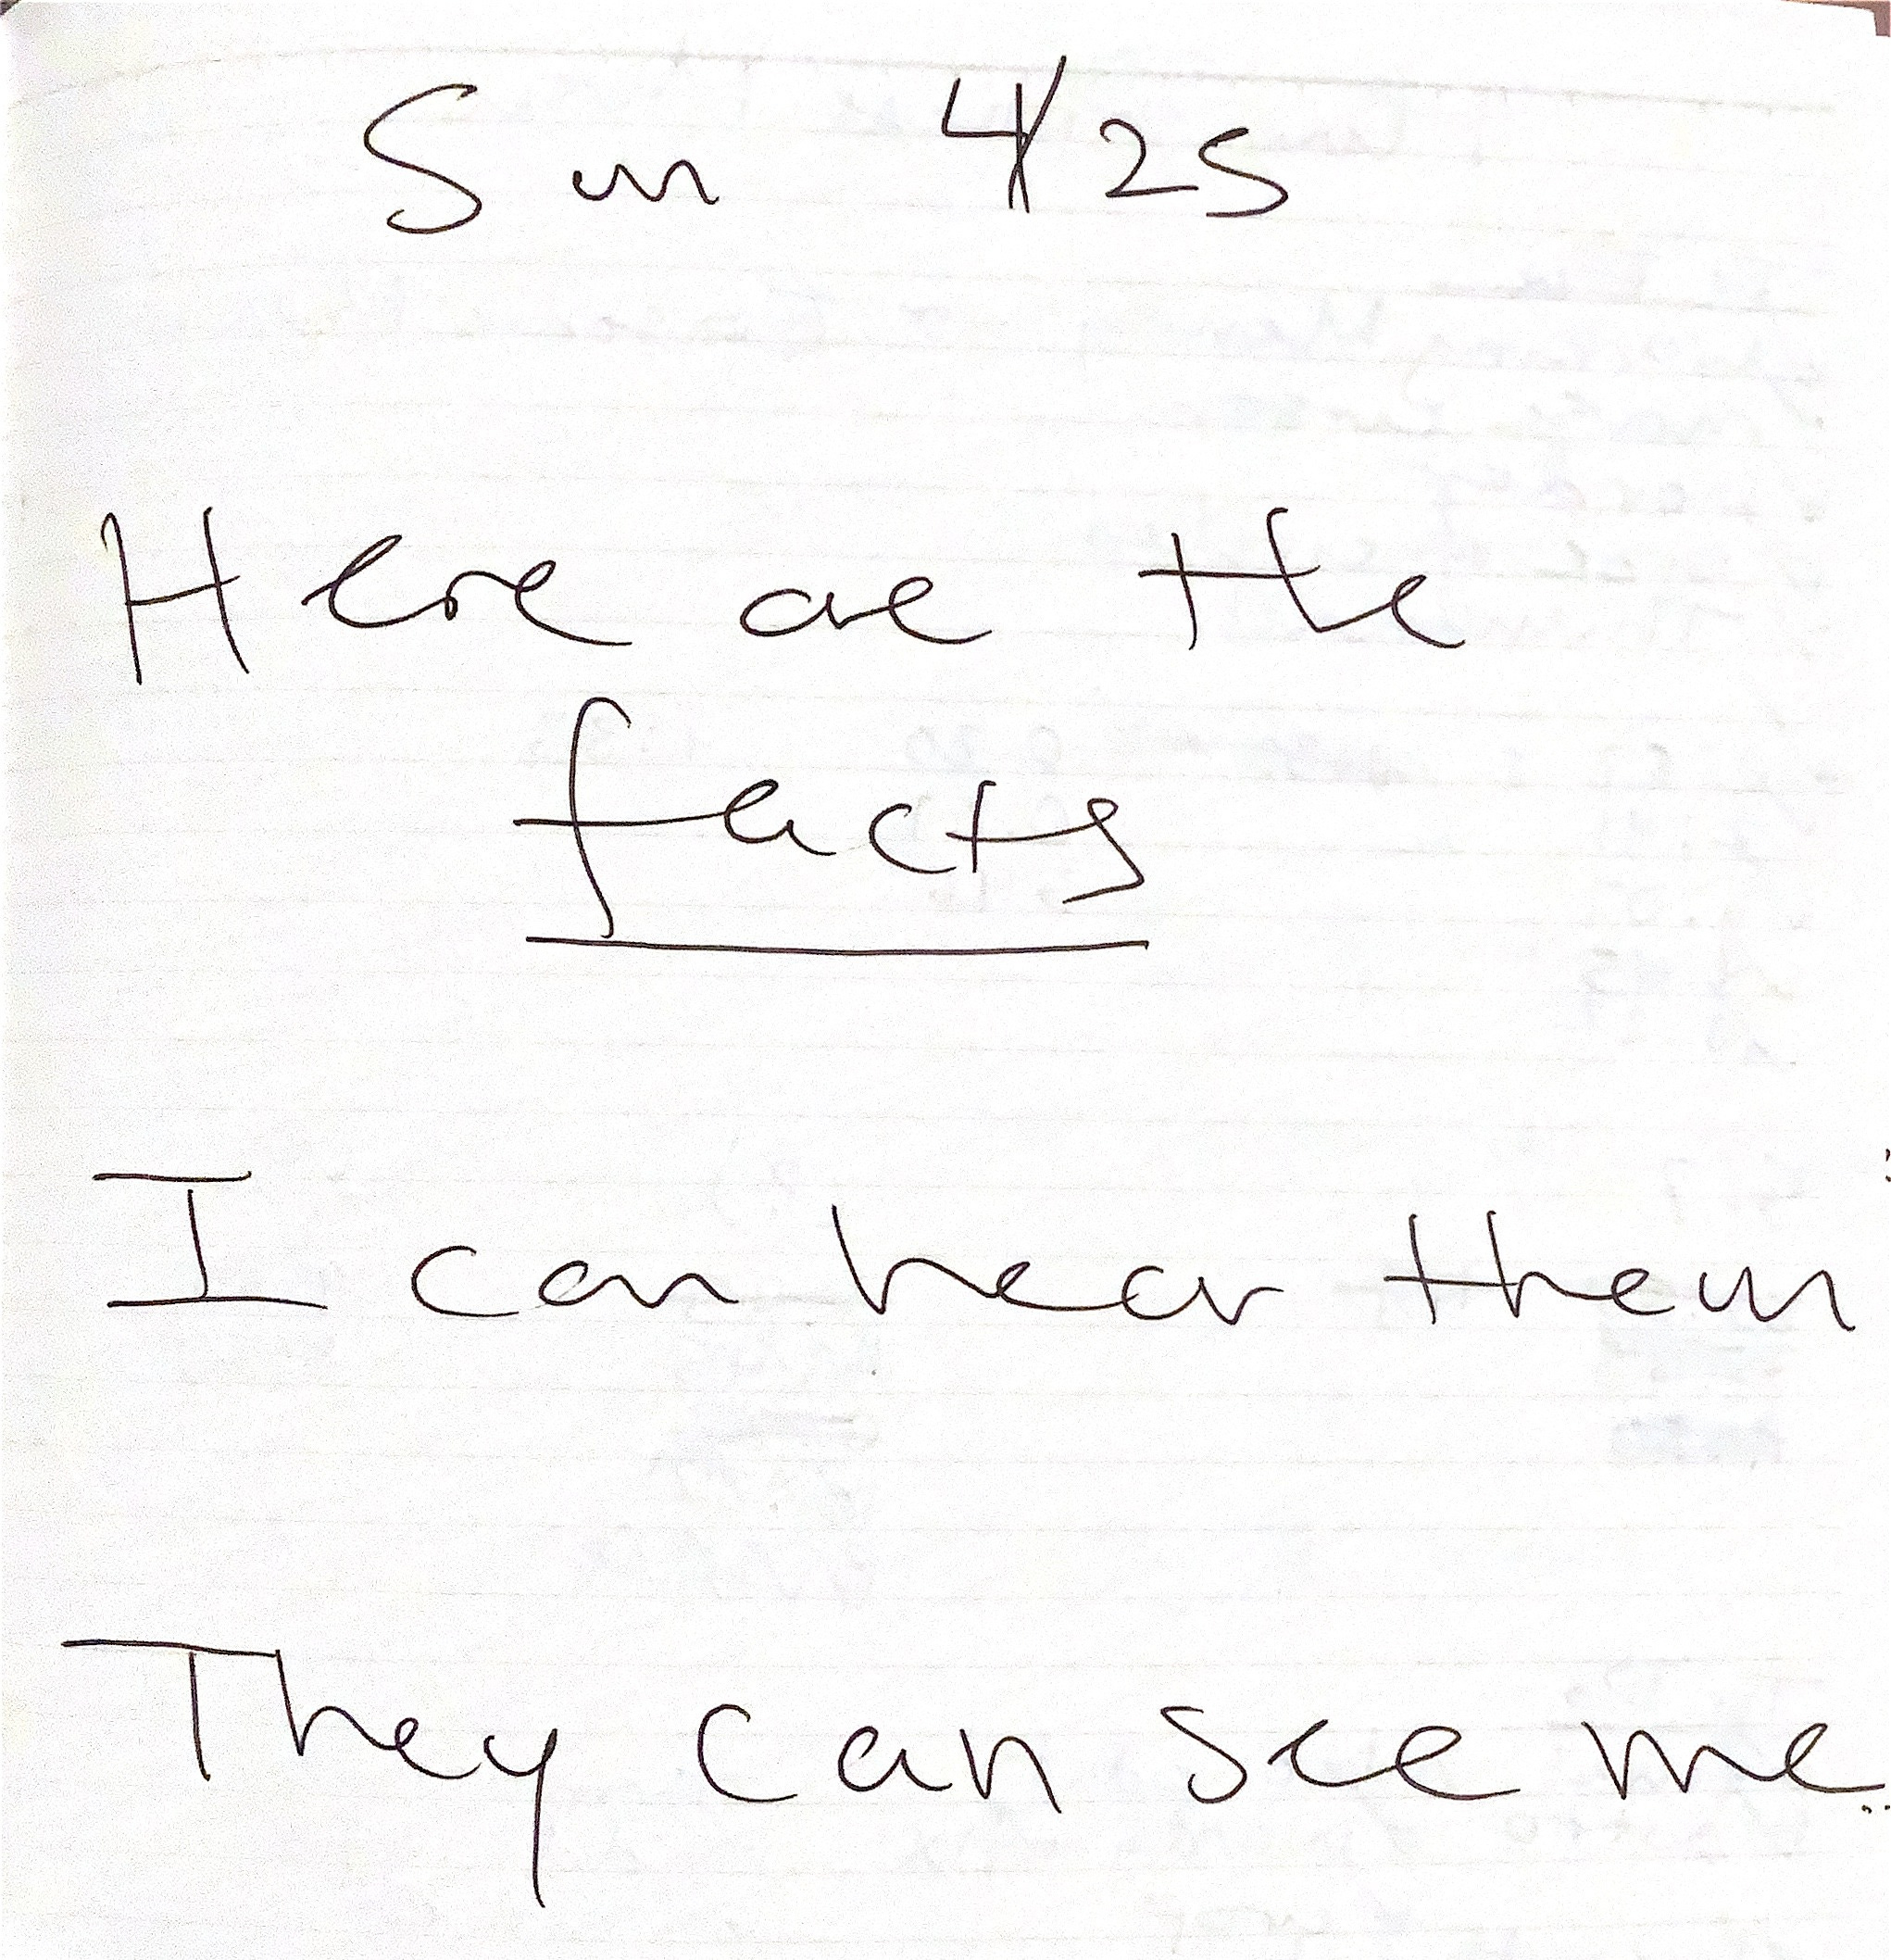 Sun 4/25
Here are the
facts
I can hear them
They can see me